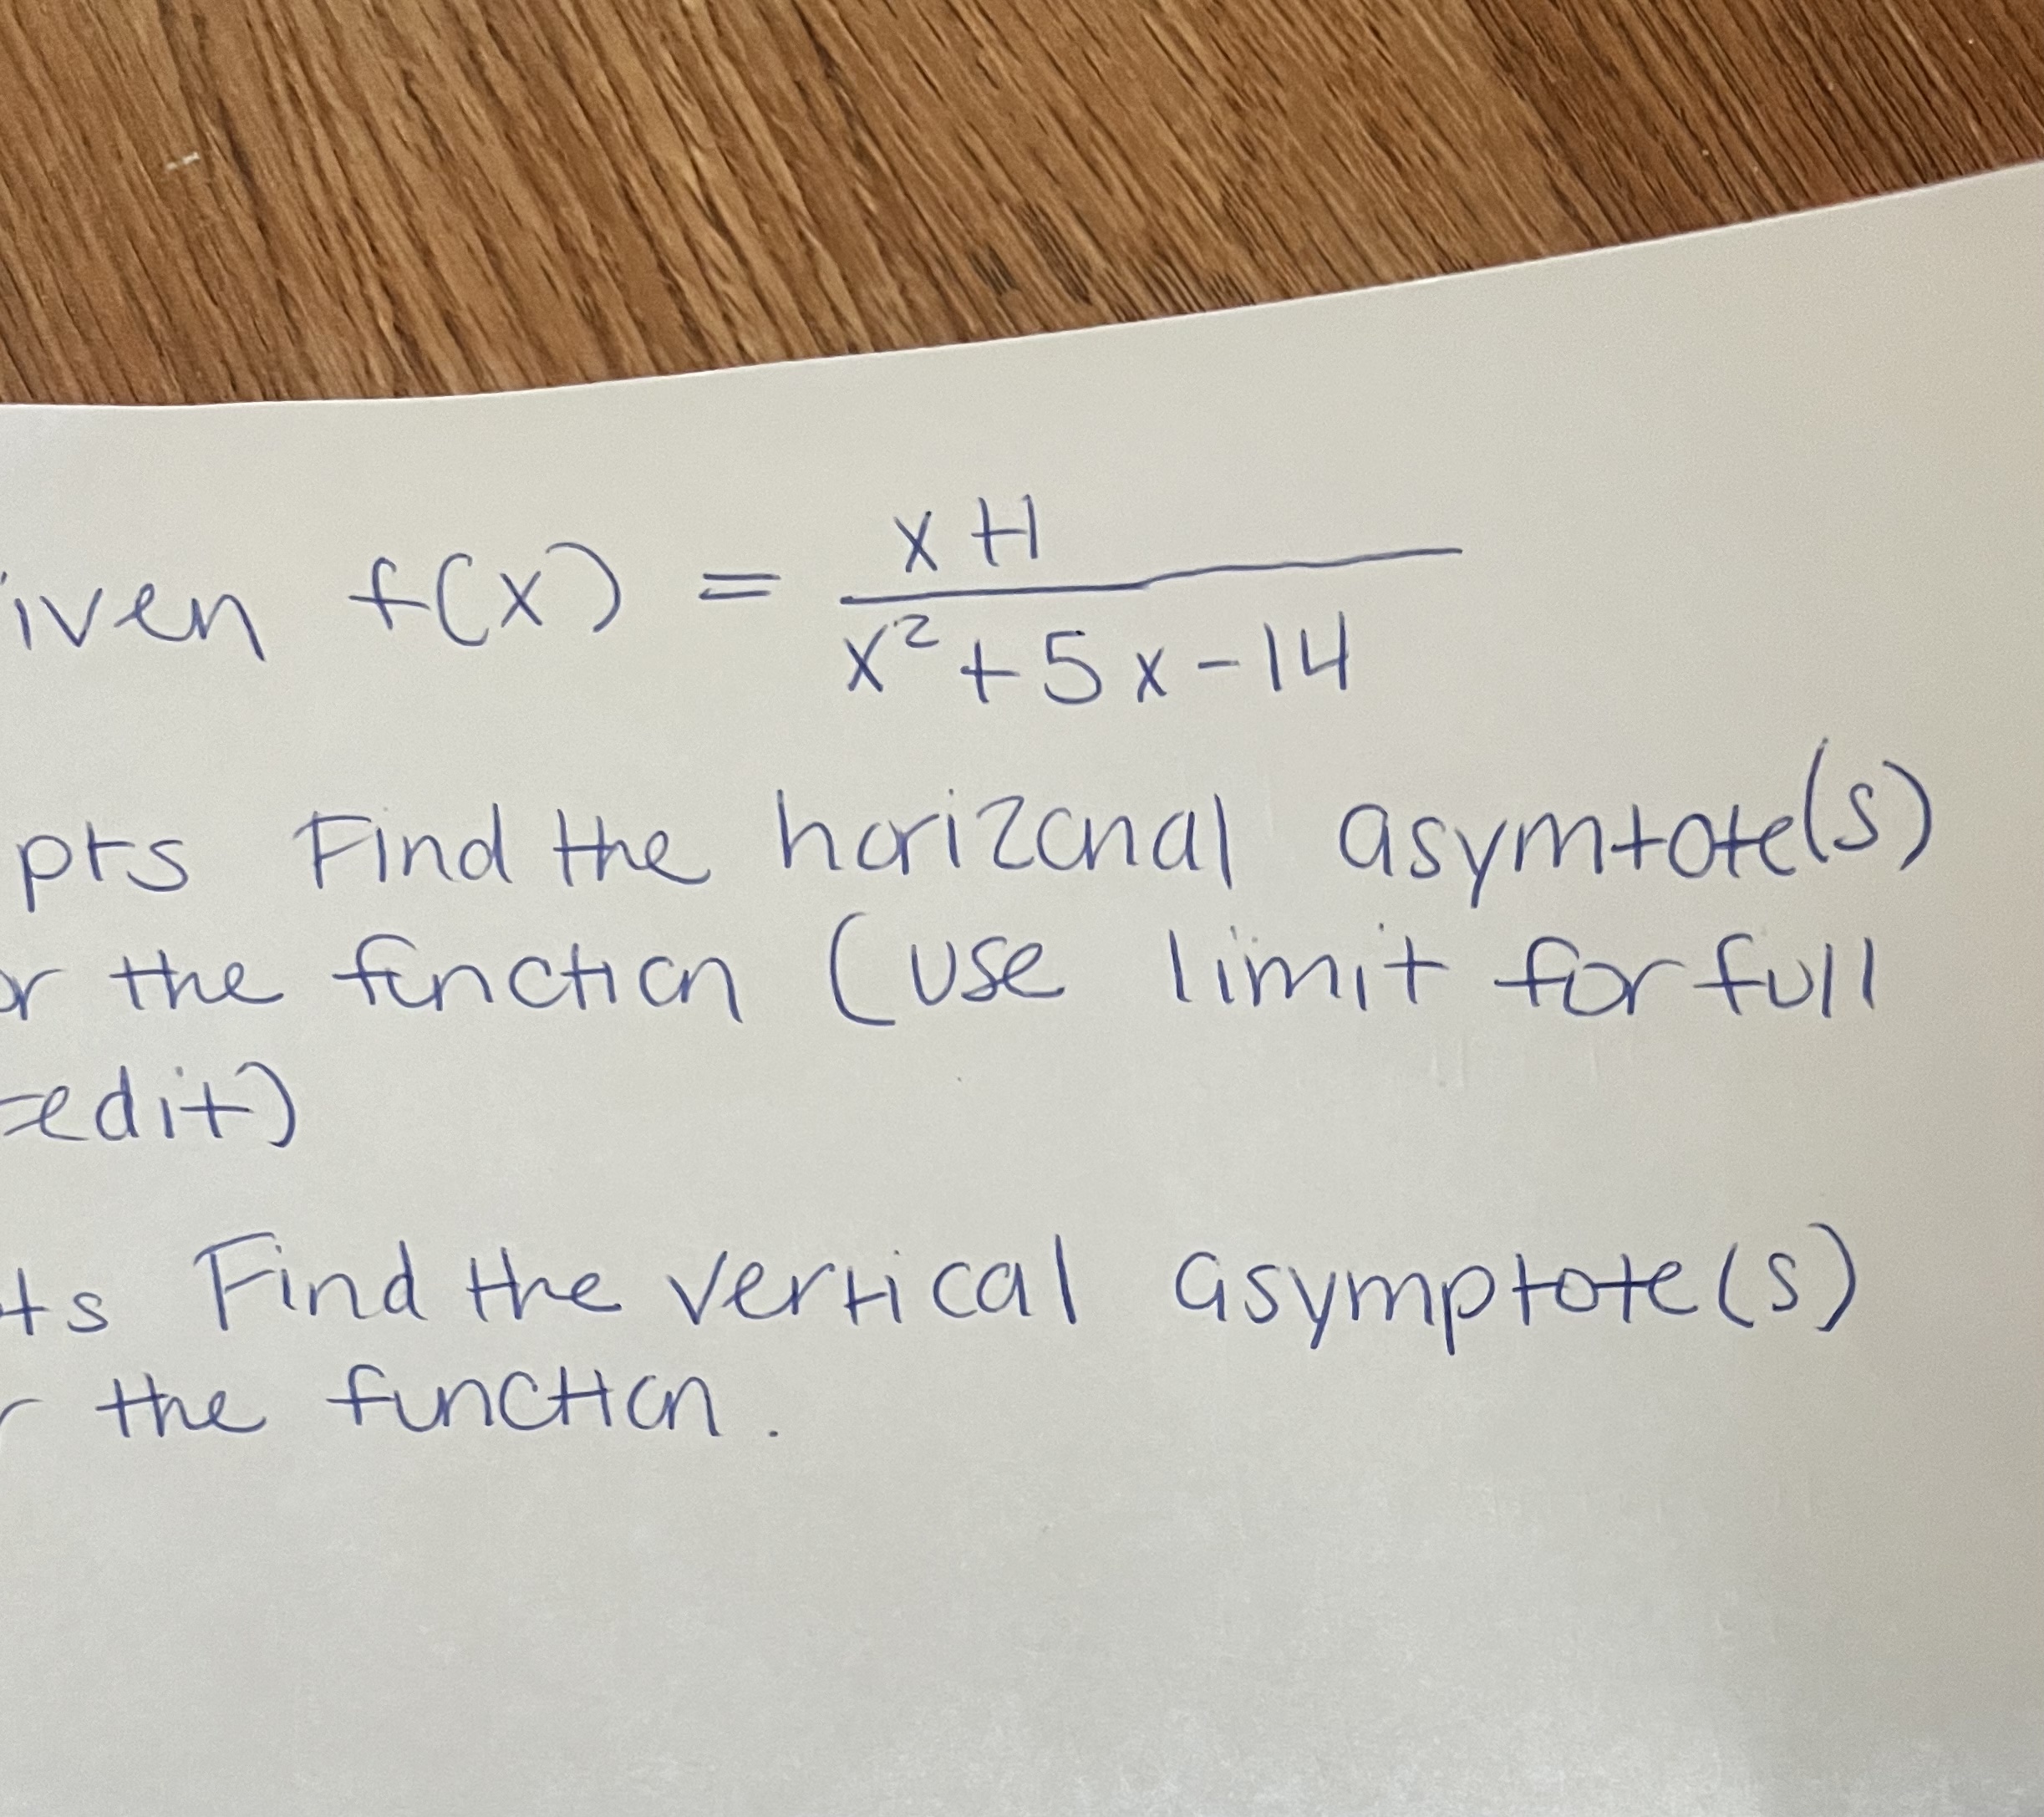 iven f(x) = x+1
x²+5x-14
pts Find the horizonal asymtote(s)
or the function (use limit for full
redit)
ts Find the vertical asymptote(s)
r the function.